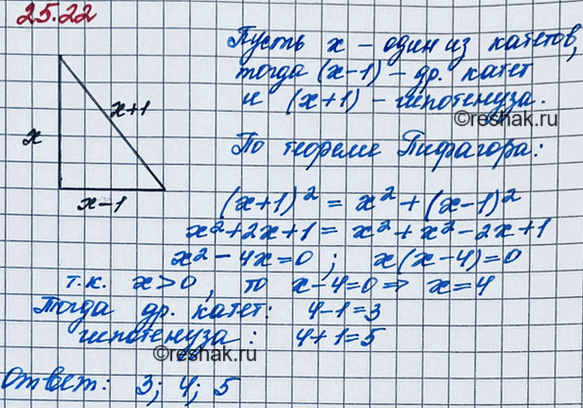 25.22
Пусть x – один из катетов,
тогда (x-1) – др. катет
и (x+1) – гипотенуза.
©reshak.ru
x+1
x
x-1
По теореме Пифагора:
(x+1)² = x² + (x-1)²
x²+2x+1 = x²+x²-2x+1
x²-4x=0 ; x(x-4)=0
т.к. x>0, то x-4=0 ⇒ x=4
Тогда др. катет: 4-1=3
гипотенуза: 4+1=5
©reshak.ru
Ответ: 3; 4; 5